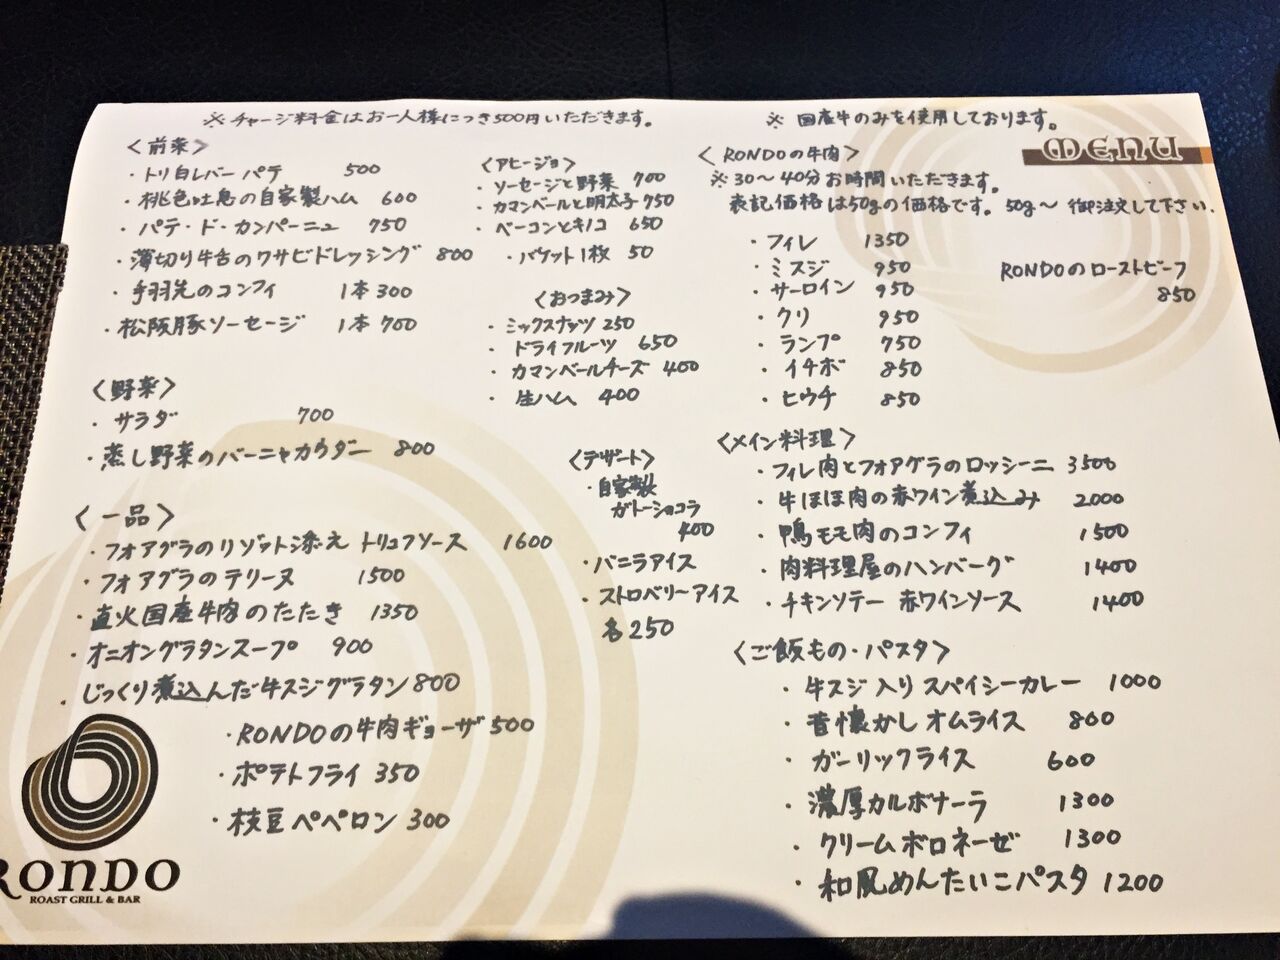 ※ チャージ料金はお一人様につき500円いただきます。
〈前菜〉
・トリ白レバーパテ 500
・桃色吐息の自家製ハム 600
・パテ・ド・カンパーニュ 750
・薄切り牛舌のワサビドレッシング 800
・手羽先のコンフィ 1本 300
・松阪豚ソーセージ 1本 700
〈野菜〉
・サラダ 700
・蒸し野菜のバーニャカウダー 800
〈一品〉
・フォアグラのリゾット添え トリュフソース 1600
・フォアグラのテリーヌ 1500
・直火国産牛肉のたたき 1350
・オニオングラタンスープ 900
・じっくり煮込んだ牛スジグラタン 800
・RONDOの牛肉ギョーザ 500
・ポテトフライ 350
・枝豆ペペロン 300
〈アヒージョ〉
・ソーセージと野菜 700
・カマンベールと明太子 750
・ベーコンとキノコ 650
・バゲット1枚 50
〈おつまみ〉
・ミックスナッツ 250
・ドライフルーツ 650
・カマンベールチーズ 400
・生ハム 400
〈デザート〉
・自家製
ガトーショコラ
400
・バニラアイス
・ストロベリーアイス
各250
※ 国産牛のみを使用しております。
MENU
〈RONDOの牛肉〉
※30〜40分お時間いただきます。
表記価格は50gの価格です。50g〜御注文して下さい.
・フィレ 1350
・ミスジ 950
・サーロイン 950
・クリ 950
・ランプ 750
・イチボ 850
・ヒウチ 850
RONDOのローストビーフ
850
〈メイン料理〉
・フィレ肉とフォアグラのロッシーニ 3500
・牛ほほ肉の赤ワイン煮込み 2000
・鴨モモ肉のコンフィ 1500
・肉料理屋のハンバーグ 1400
・チキンソテー 赤ワインソース 1400
〈ご飯もの・パスタ〉
・牛スジ入りスパイシーカレー 1000
・昔懐かしオムライス 800
・ガーリックライス 600
・濃厚カルボナーラ 1300
・クリームボロネーゼ 1300
・和風めんたいこパスタ 1200
RONDO
ROAST GRILL & BAR